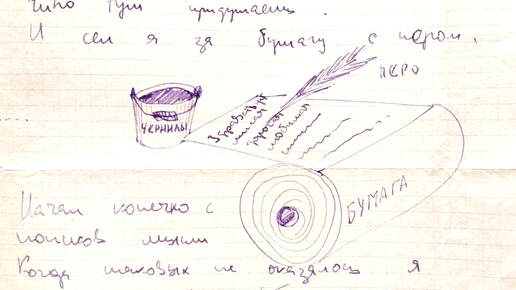 чтно тут придумаешь.
И сел я за бумагу с пером.
ПЕРО
ЧЕРНИЛЫ
Здравствуй
милая
дорогая
любимая
БУМАГА
Начал конечно с
поисков мысли
Когда таковых не оказалось я